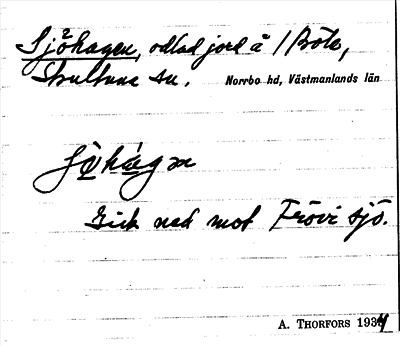 Sjöhagen, odlad jord å 1 Böle,
Skultuna sn. Norrbo hd, Västmanlands län
Gick ned mot Frövi sjö.
A. THORFORS 1934